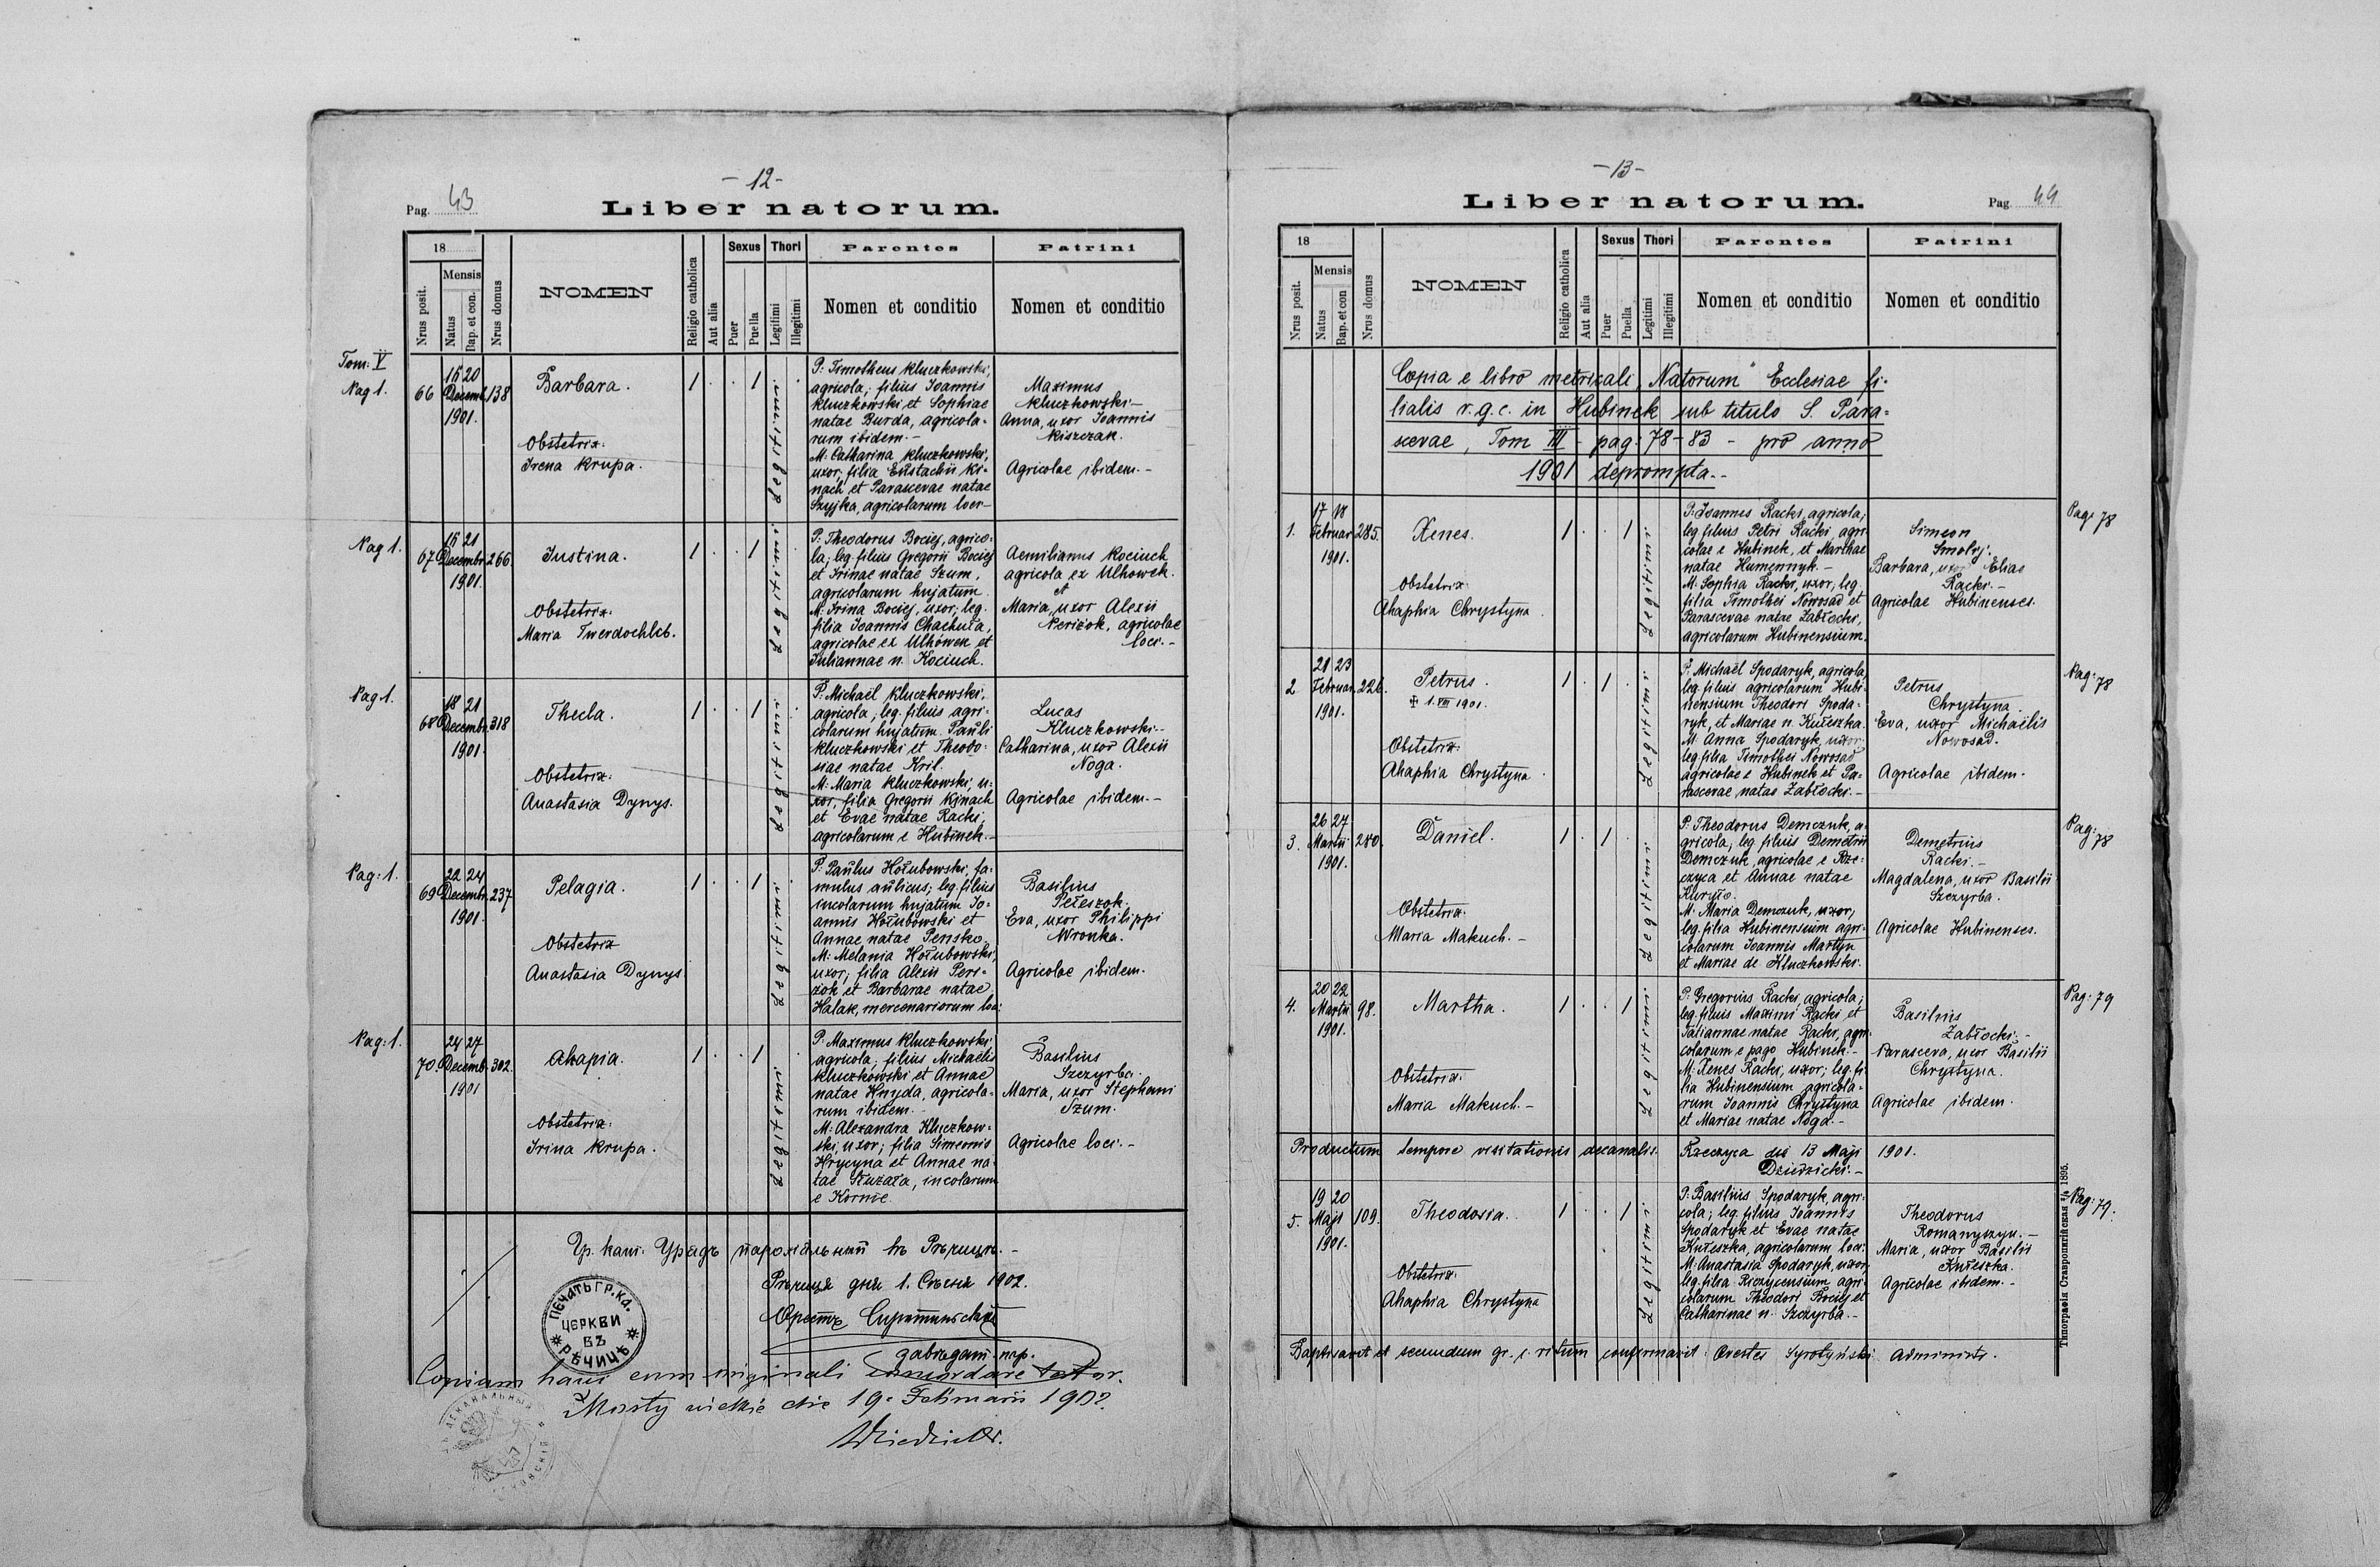 - 12 -
Pag. 43
Liber natorum.
18
Nrus posit.
Mensis
Natus
Bap. et con.
Nrus domus
NOMEN
Religio catholica
Aut alia
Sexus
Puer
Puella
Thori
Legitimi
Illegitimi
Parentes
Nomen et conditio
Patrini
Nomen et conditio
Tom: V
Pag 1.
66
15 20
Decemb.
1901.
138
Barbara.
Obstetrix:
Irena Krupa.
1 . . 1 .
Legitimi
P: Timotheus Kluczkowski,
agricola; filius Ioannis
Kluczkowski et Sophiae
natae Burda, agricola-
rum ibidem.-
M: Catharina Kluczkowski,
uxor; filia Eustachii Ki-
nach et Parascevae natae
Szyjka, agricolarum loci-
Maximus
Kluczkowski-
Anna, uxor Ioannis
Kiszczak.
Agricolae ibidem.-
Pag 1.
67
15 21
Decembr.
1901.
266
Iustina.
Obstetrix:
Maria Twerdochleb.
1 . . 1 .
Legitimi
P: Theodorus Bociej, agrico-
la; leg. filius Gregorii Bociej
et Irinae natae Szum,
agricolarum hujatum.
M: Irina Bociej, uxor; leg.
filia Ioannis Chachuła,
agricolae ex Ulhówek et
Iuliannae n. Kociuch.
Aemilianus Kociuch
agricola ex Ulhowek.
et
Maria, uxor Alexii
Perizok, agricolae
loci.-
Pag 1.
68
18 21
Decembr.
1901.
318
Thecla.
Obstetrix:
Anastasia Dynys.
1 . . 1 .
Legitimi
P: Michaël Kluczkowski,
agricola; leg. filius agri-
colarum hujatum Pauli
Kluczkowski et Theodo-
siae natae Kril.
M: Maria Kluczkowski, u-
xor, filia Gregorii Kinach
et Evae natae Racki,
agricolarum e Hubinek.-
Lucas
Kluczkowski.-
Catharina, uxor Alexii
Noga.
Agricolae ibidem.-
Pag: 1.
69
22 24
Decembr.
1901.
237
Pelagia.
Obstetrix
Anastasia Dynys
1 . . 1 .
Legitimi
P: Paulus Hołubowski, fa-
mulus aulicus; leg. filius
incolarum hujatum Io-
annis Hołubowski et
Annae natae Pensko.
M: Melania Hołubowski,
uxor; filia Alexii Peri-
zok et Barbarae natae
Halak, mercenariorum loci:
Basilius
Pełeszok.
Eva, uxor Philippi
Wronka.
Agricolae ibidem.
Pag: 1.
70
24 27
Decemb.
1901
302.
Ahapia.
Obstetrix:
Irina Krupa.
1 . . 1 .
Legitimi
P: Maximus Kluczkowski,
agricola; filius Michaëlis
Kluczkowski et Annae
natae Hnyda, agricola-
rum ibidem.-
M: Alexandra Kluczkow-
ski, uxor; filia Simeonis
Hrycyna et Annae na-
tae Służała, incolarum
e Kornie.
Basilius
Szczyrba.
Maria, uxor Stephani
Szum.
Agricolae loci.-
Гр. кат. Урядъ парохіяльный въ Рѣчицѣ.-
Рѣчиця дня 1. Сѣчня 1902.
Орестъ
завѣдат. пар.
ПЕЧАТЬ ГР. КА.
ЦЕРКВИ
ВЪ
РѢЧИЦѢ
Copiam hanc cum originali concordare testor.
Mosty wielkie die 19. Februarii 1902.
- 13 -
Liber natorum.
Pag. 44
18
Nrus posit.
Mensis
Natus
Bap. et con
Nrus domus
NOMEN
Religio catholica
Aut alia
Sexus
Puer
Puella
Thori
Legitimi
Illegitimi
Parentes
Nomen et conditio
Patrini
Nomen et conditio
Copia e libro metricali „Natorum" Ecclesiae fi-
lialis r. g. c. in Hubinek sub titulo S. Para-
scevae, Tom III - pag: 78 - 83 - pro anno
1901 deprompta.-
Pag: 78
1.
17 18
Februar.
1901.
285.
Xenes.
Obstetrix:
Ahaphia Chrystyna.
1 . . 1
Legitimi
P: Ioannes Racki, agricola;
leg. filius Petri Racki agri-
colae e Hubinek, et Marthae
natae Humennyk.-
M: Sophia Racki, uxor; leg.
filia Timothei Nowosad et
Parascevae natae Zabłocki,
agricolarum Hubinensium.
Simeon
Smolyj.
Barbara, uxor Elias
Racki.-
Agricolae Hubinenses.
Pag: 78
2
21 23
Februar.
1901.
226.
Petrus.
✠ 1. VIII 1901.
Obstetrix:
Ahaphia Chrystyna.
1 . 1 .
Legitimi
P: Michaël Spodaryk, agricola,
leg. filius agricolarum Hubi-
nensium Theodori Spoda-
ryk, et Mariae n. Kułeszka.
M: Anna Spodaryk, uxor;
leg. filia Timothei Nowosad
agricolae e Hubinek et Pa-
rascevae natae Zabłocki.-
Petrus
Chrystyna.
Eva, uxor Michaëlis
Nowosad.
Agricolae ibidem.
Pag: 78
3.
26 27
Martii
1901.
280.
Daniel.
Obstetrix:
Maria Makuch.-
1 . 1 .
Legitimi
P: Theodorus Demczuk, a-
gricola; leg. filius Demetrii
Demczuk, agricolae e Rze-
czyca et Annae natae
Kuryło.
M: Maria Demczuk, uxor;
leg. filia Hubinensium agri-
colarum Ioannis Martyn
et Mariae de Kluczkowski.
Demetrius
Racki.-
Magdalena, uxor Basilii
Szczyrba.
Agricolae Hubinenses.
Pag: 79
4.
20 22
Martii
1901.
98.
Martha.
Obstetrix:
Maria Makuch.-
1 . . 1
Legitimi
P: Gregorius Racki, agricola;
leg. filius Maximi Racki et
Tatiannae natae Racki, agri-
colarum e pago Hubinek.-
M: Xenes Racki, uxor; leg. fi-
lia Hubinensium agricola-
rum Ioannis Chrystyna
et Mariae natae Noga.-
Basilius
Zabłocki.-
Parasceva, uxor Basilii
Chrystyna.
Agricolae ibidem.
Productum tempore visitationis decanalis. Rzeczyca die 13 Maji 1901.
Dziedzicki.-
Pag: 79.
5.
19 20
Maji
1901.
109.
Theodosia.
Obstetrix:
Ahaphia Chrystyna
1 . . 1
Legitimi
P: Basilius Spodaryk, agri-
cola; leg. filius Ioannis
Spodaryk et Evae natae
Kułeszka, agricolarum loci:
M: Anastasia Spodaryk, uxor,
leg. filia Riczycensium agri-
colarum Theodori Bociej et
Catharinae n. Szczyrba.-
Theodorus
Romanyszyn.-
Maria, uxor Basilii
Kułeszka.
Agricolae ibidem.-
Baptisavit et secundum gr. c. ritum confirmavit: Orestes Syrotyński Administr.
Типографія Ставропигійская 1895.